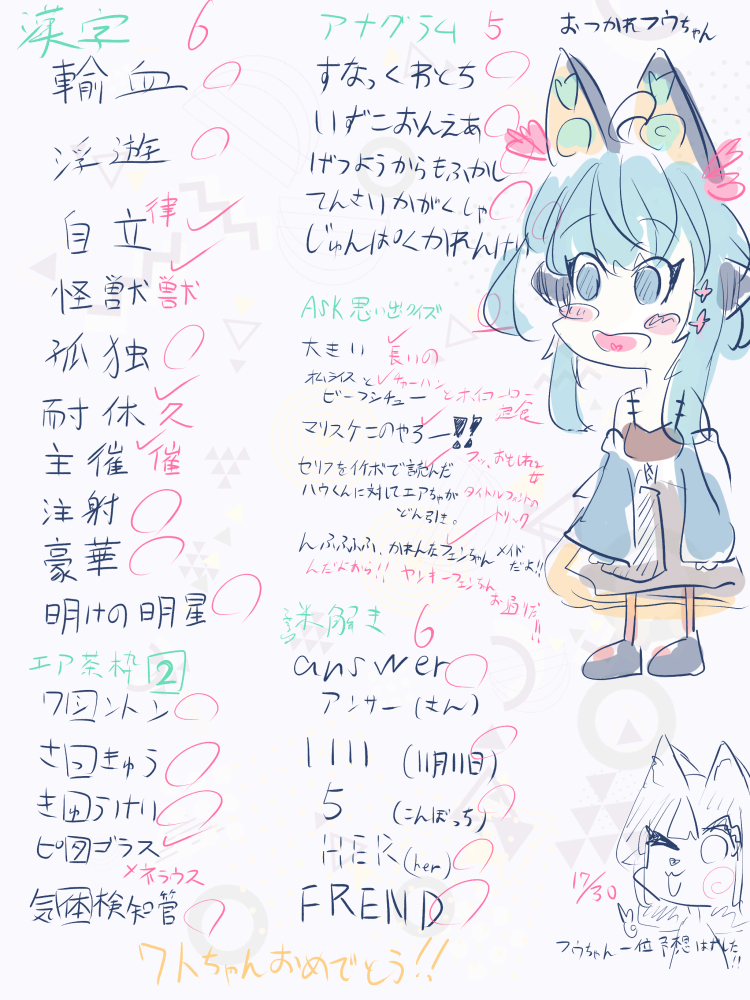 漢字 6
輸血
浮遊
自立 律
怪獣 獣
孤独
耐休 久
主催 催
注射
豪華
明けの明星
エア茶枠 2
ワ図ントン
さ回きゅう
きゅうけい
ピタゴラス
×ネラウス
気体検知管
アナグラム 5
すなっくおとち
いずこおんえあ
げつようからもふかし
てんさいかがくしゃ
じゅんぱくかれんけい
ASK思い出クイズ
大きい 長いの
オムライスと チャーハンとホイコーロー
ビーフシチュー 定食
マリスケこのやろー!!
セリフをイケボで読んだ フッ、おもしれー女
ハウくんに対してエアちゃが タイトルフォントの
どん引き。 トリック
んふふふふ、かれんなフェンちゃん メイドだよ!!
んだとから!! ヤンキーフェンちゃん
お通りだ!!
謎解き 6
answer
アンサー(さん)
1111 (11月11日)
5 (こんぼっち)
HER (her)
FREND
おつかれフウちゃん
17/30
フウちゃん一位予想はずした!!
ワトちゃんおめでとう!!